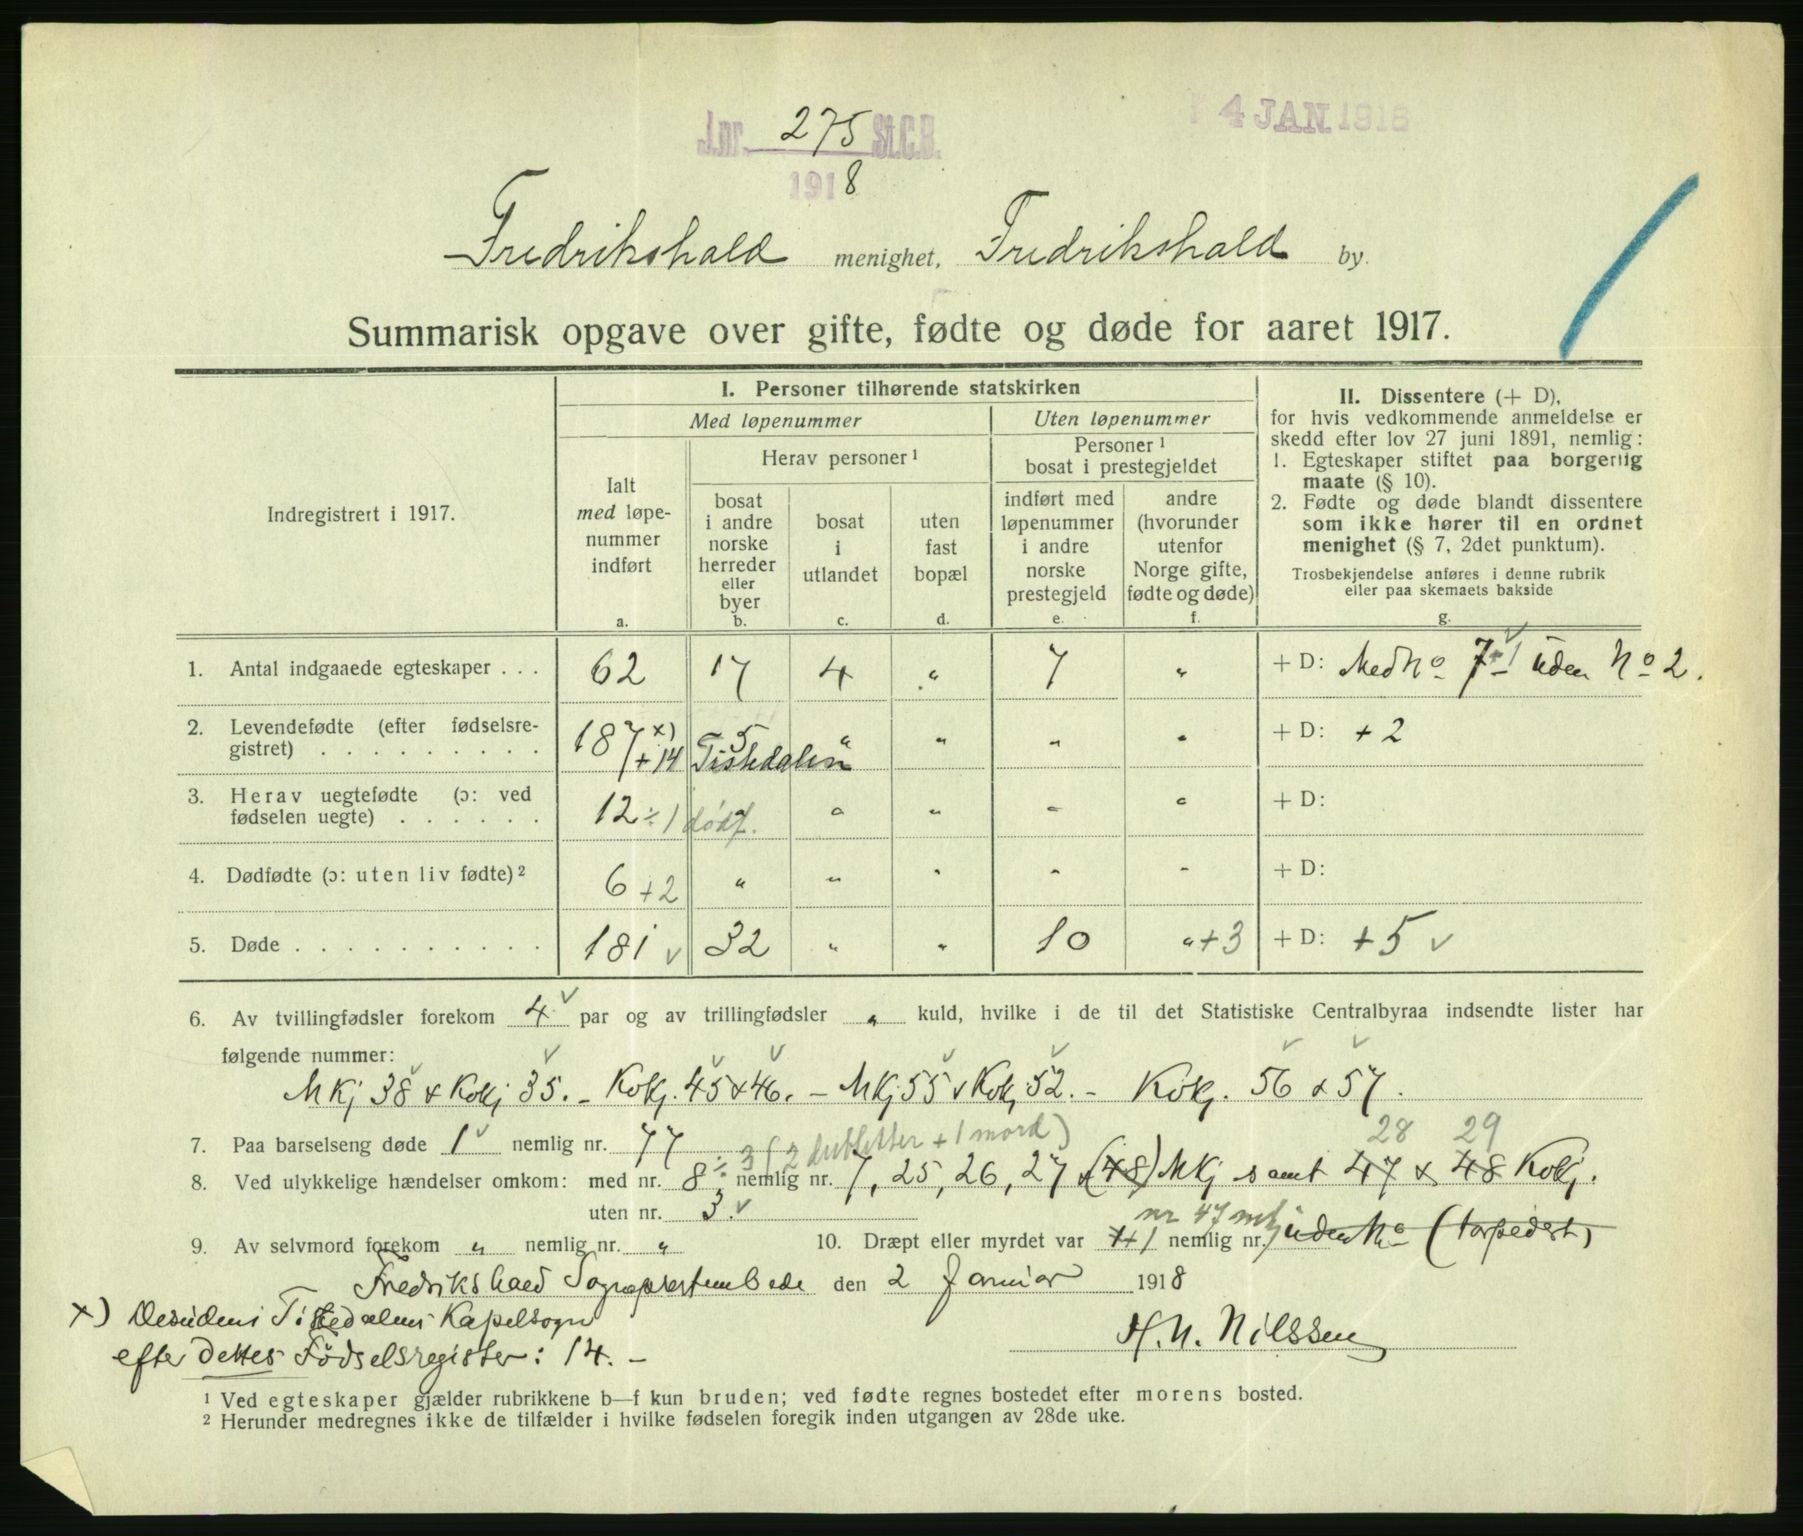 J.nr. 275 St.C.B.
1918
4 JAN. 1918
Fredrikshald menighet, Fredrikshald by.
Summarisk opgave over gifte, fødte og døde for aaret 1917.
Indregistrert i 1917.
I. Personer tilhørende statskirken
Med løpenummer
Uten løpenummer
Ialt
med løpe-
nummer
indført
a.
Herav personer 1
bosat
i andre
norske
herreder
eller
byer
b.
bosat
i
utlandet
c.
uten
fast
bopæl
d.
Personer 1
bosat i prestegjeldet
indført med
løpenummer
i andre
norske
prestegjeld
e.
andre
(hvorunder
utenfor
Norge gifte,
fødte og døde)
f.
II. Dissentere (+ D),
for hvis vedkommende anmeldelse er
skedd efter lov 27 juni 1891, nemlig:
1. Egteskaper stiftet paa borgerlig
maate (§ 10).
2. Fødte og døde blandt dissentere
som ikke hører til en ordnet
menighet (§ 7, 2det punktum).
Trosbekjendelse anføres i denne rubrik
eller paa skemaets bakside
g.
1. Antal indgaaede egteskaper . . . 62 17 4 " 7 " + D: Med No 7 +1 uden No 2.
2. Levendefødte (efter fødselsre-
gistret) . . . . . . . . . . 187 x) 5 " " " " + D: + 2
+ 14 Tistedalen
3. Herav uegtefødte (ɔ: ved
fødselen uegte) . . . . . . 12 ÷ 1 dødf. " " " " + D:
4. Dødfødte (ɔ: uten liv fødte) 2 6 + 2 " " " " " + D:
5. Døde . . . . . . . . . . 181 v 32 " " 10 " + 3 + D: + 5 v
6. Av tvillingfødsler forekom 4 v par og av trillingfødsler " kuld, hvilke i de til det Statistiske Centralbyraa indsendte lister har
følgende nummer:
MKj 38 & Kvkj 35. - Kvkj. 45 & 46. - MKj 55 & Kvkj 52. - Kvkj. 56 & 57.
7. Paa barselseng døde 1 v nemlig nr. 77
÷ 3 (2 dubletter + 1 mord) 28 29
8. Ved ulykkelige hændelser omkom: med nr. 8 nemlig nr. 7, 25, 26, 27 & (48) MKj samt 47 & 48 Kvkj.
uten nr. 3. v
nr 47 mkj
9. Av selvmord forekom " nemlig nr. " 10. Dræpt eller myrdet var 1 nemlig nr. uden No (torpedert)
Fredrikshald Sogneprestembede den 2 Januar 1918
H. N. Nilssen
x) Desuden i Tistedalens Kapelsogn
efter dettes Fødselsregister: 14. -
1 Ved egteskaper gjælder rubrikkene b—f kun bruden; ved fødte regnes bostedet efter morens bosted.
2 Herunder medregnes ikke de tilfælder i hvilke fødselen foregik inden utgangen av 28de uke.